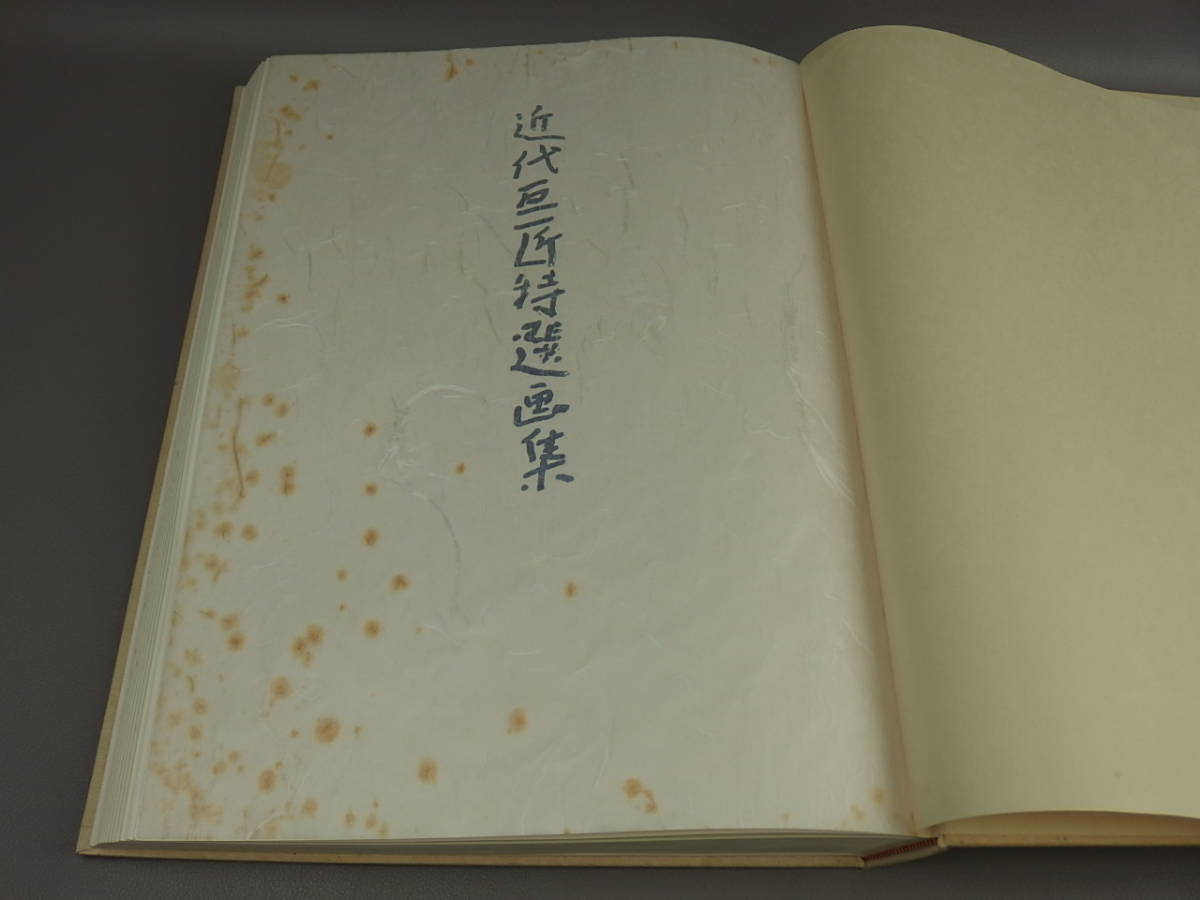 近代巨匠特選画集